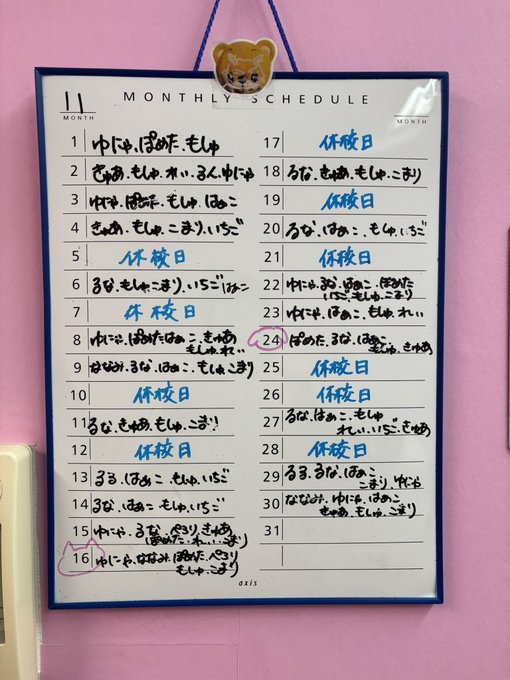 11
MONTHLY SCHEDULE
MONTH
MONTH
1 ゆにゃ.ぽめた.もしゅ
2 きゅあ.もしゅ.れい.るん.ゆにゃ
3 ゆにゃ.ぽめた.もしゅ.はねこ
4 きゅあ.もしゅ.こまり.いちご
5 休校日
6 るな.もしゅ.こまり.いちご
7 休校日
8 ゆにゃ.ぽめた.はねこ.きゅあ
もしゅ.れい
9 ななみ.るな.はねこ.もしゅ.こまり
10 休校日
11 るな.きゅあ.もしゅ.こまり
12 休校日
13 るる.はねこ.もしゅ.いちご
14 るな.はねこ.もしゅ.いちご
15 ゆにゃ.るな.ぺろり.きゅあ
れい.こまり
16 ゆにゃ.ななみ.ぽめた.ぺろり
もしゅ.こまり
17 休校日
18 るな.きゅあ.もしゅ.こまり
19 休校日
20 るな.はねこ.もしゅ.いちご
21 休校日
22 ゆにゃ.るな.はねこ.ぽめた
いちご.もしゅ.こまり
23 ゆにゃ.はねこ.もしゅ.れい
24 ぽめた.るな.はねこ
もしゅ.きゅあ
25 休校日
26 休校日
27 るな.はねこ.もしゅ
れい.いちご.きゅあ
28 休校日
29 るる.るな.はねこ
こまり.ゆにゃ
30 ななみ.ゆにゃ.はねこ
きゅあ.もしゅ.こまり
31
axis